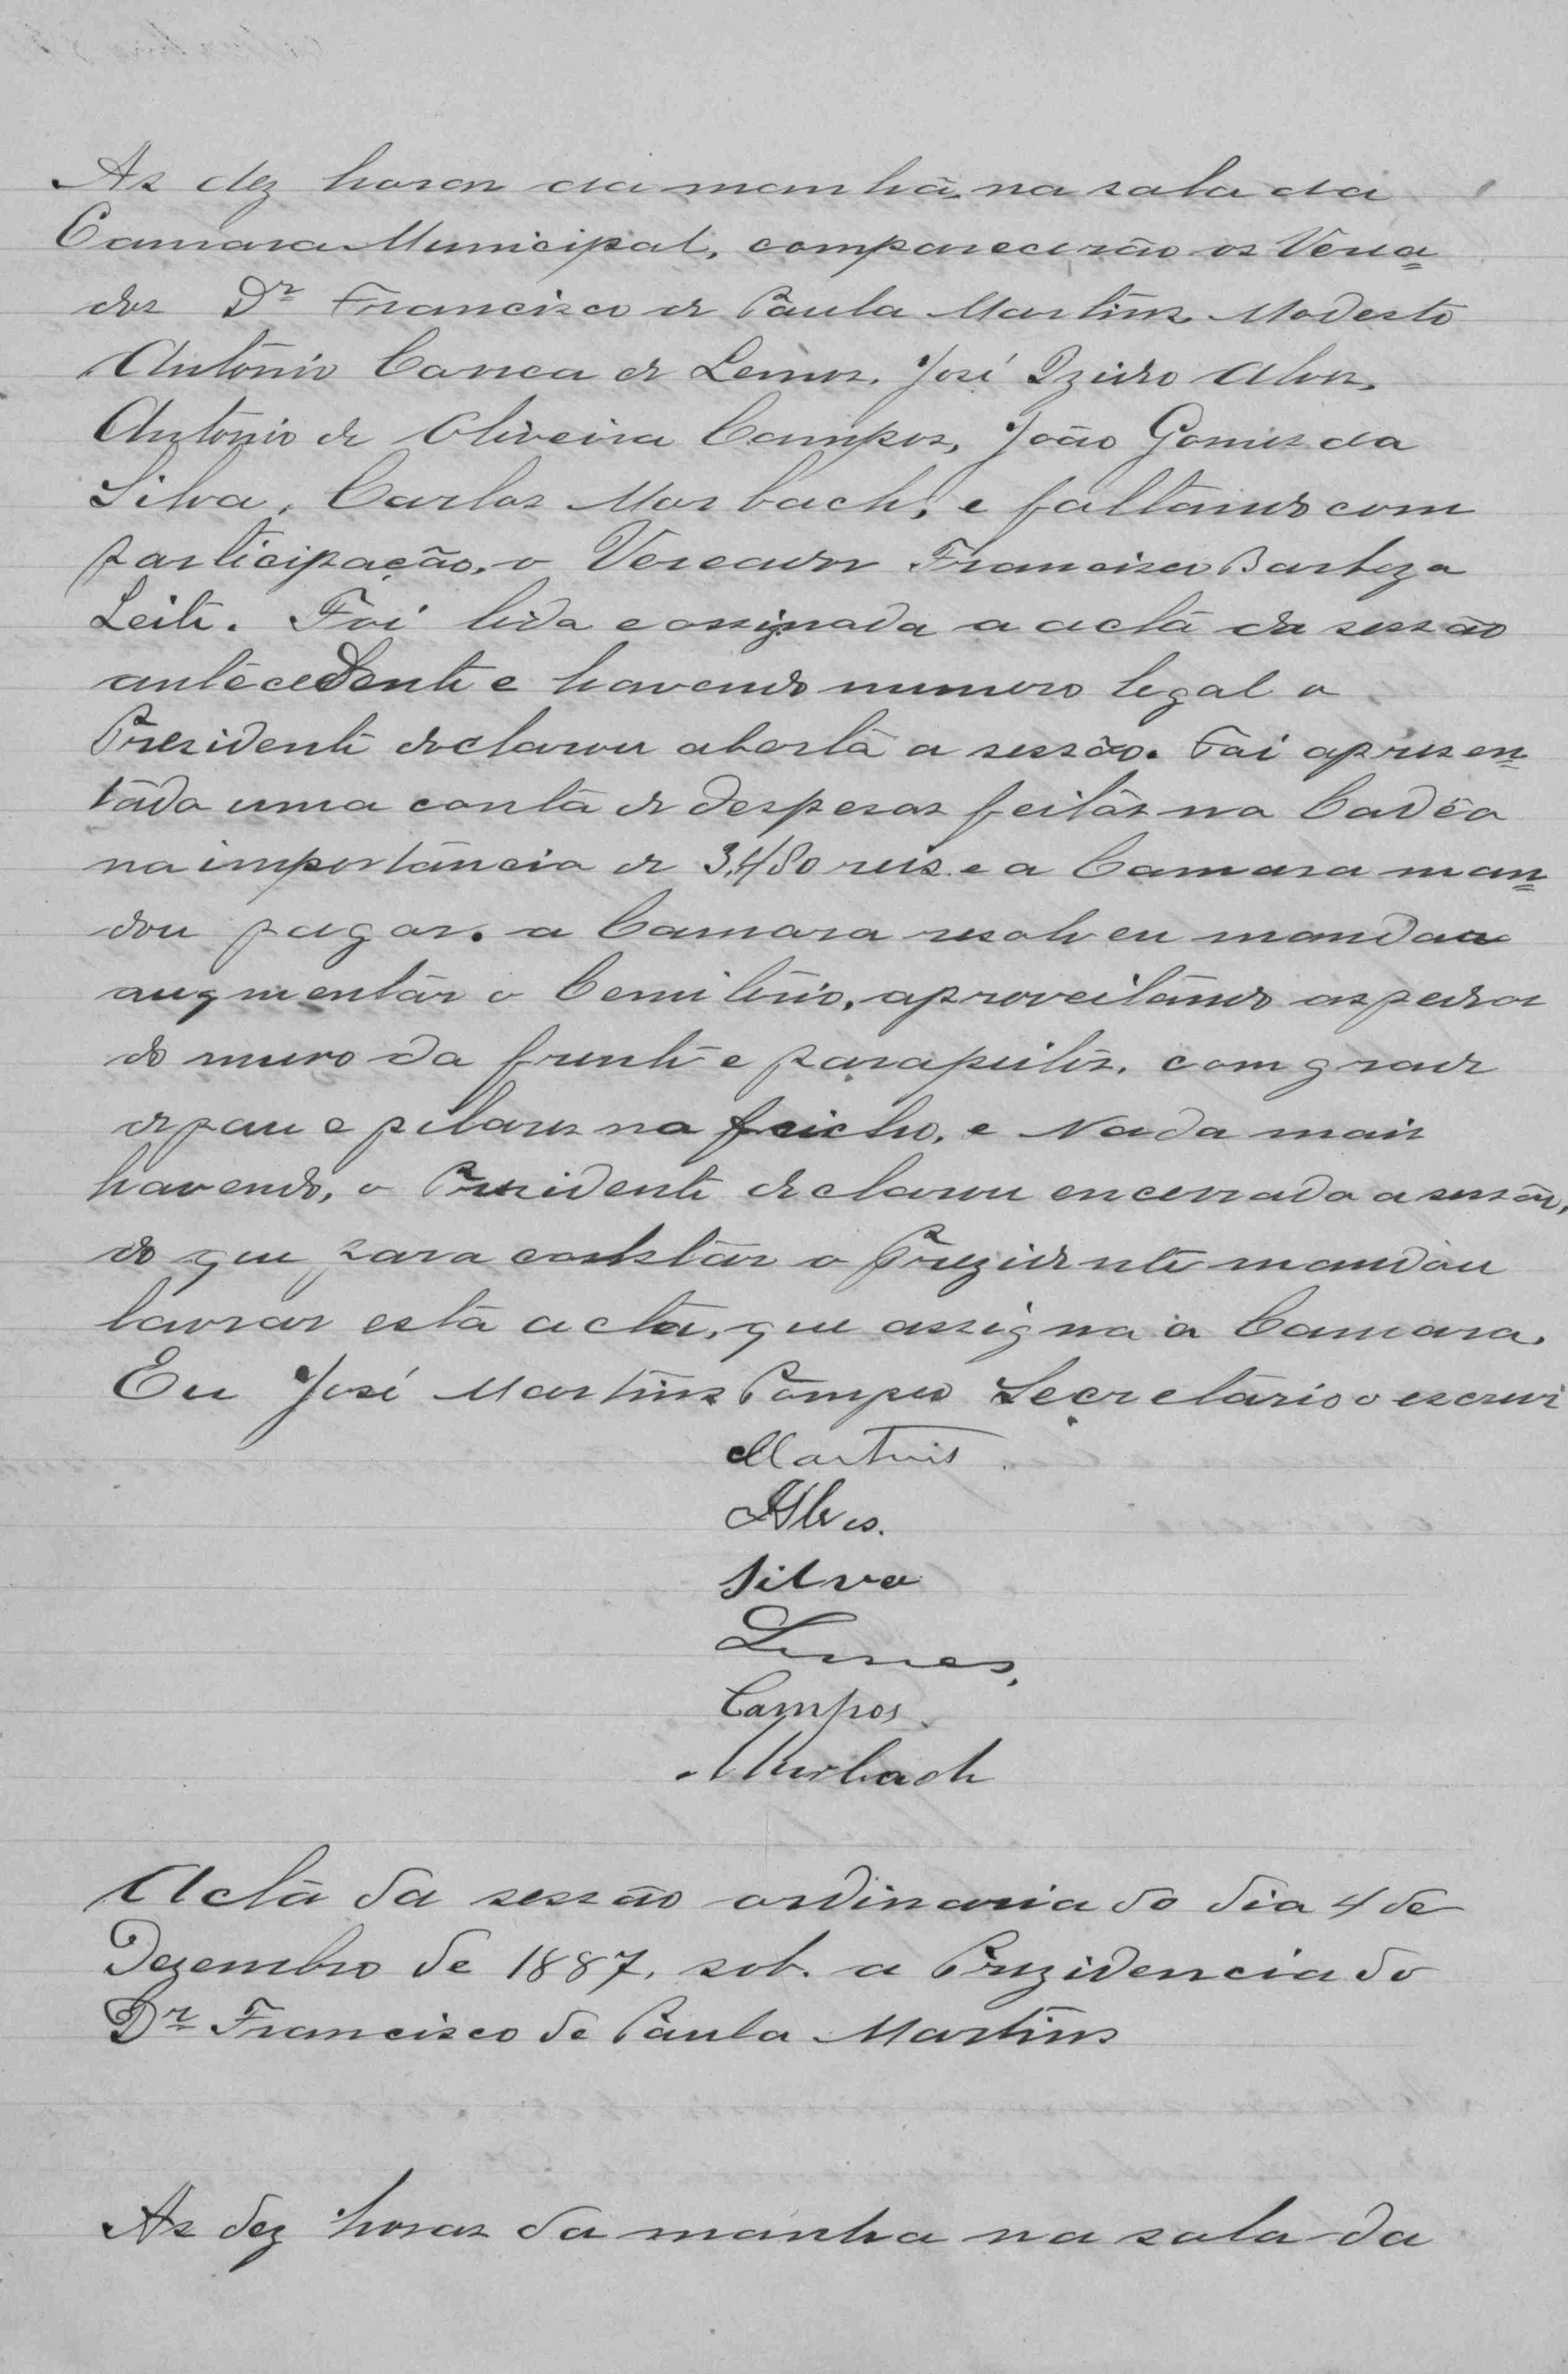 As dez horas da manhã, na sala da
Camara Municipal, comparecerão os Verea=
dos Dr Francisco de Paula Martins, Modesto
Antônio de Lemos, José Izidro Alves,
Antonio de Oliveira Campos, João Gomes da
Silva, Carlos Morbach, e faltando com
participação, o Vereador Francisco Barboza
Leite. Foi lida e assignada a acta da sessão
antecedente e havendo numero legal o
Presidente declarou aberta a sessão. Foi apresen=
tada uma conta de despesas feitas na Cadêa
na importância de 3,480 reis e a Camara man=
dou pagar. a Camara resolveu mandar
augmentar o Cemiterio, aproveitando as pedras
do muro da frente e parapeitos, com grade
de pau e pilares na feicho, e Nada mais
havendo, o Presidente declarou encerrada a sessão,
do que para constar o Prezidente mandou
lavrar esta acta, que assigna a Camara.
Eu José Martins Pompeo Secretário o escrevi
Martins
Alves.
Silva
Lemes.
Campos.
Morbach
Acta da sessão ordinaria do dia 4 de
Dezembro de 1887, sob. a Prezidencia do
Dr Francisco de Paula Martins
As dez horas da manha na sala da